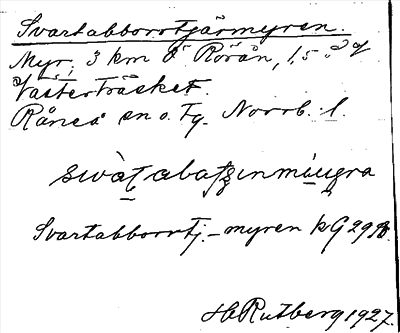 Svartabborrtjärmyren.
Myr, 3 km Ö Rörån, 1,5
Västerträsket.
Råneå sn o. Tg. Norrb. l.
Svartabborrtj.-myren kG 29
HRutberg 1927.